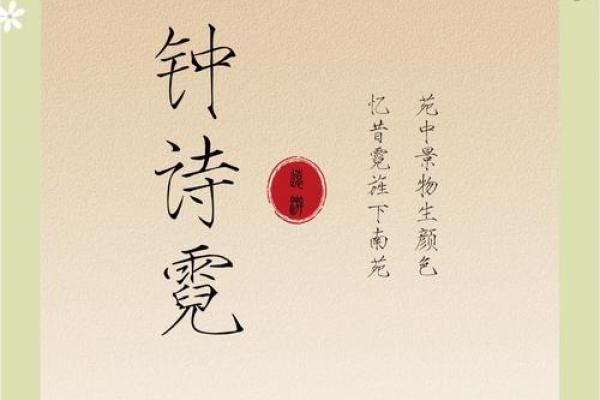 钟诗霓
忆昔霓旌下南苑
苑中景物生颜色